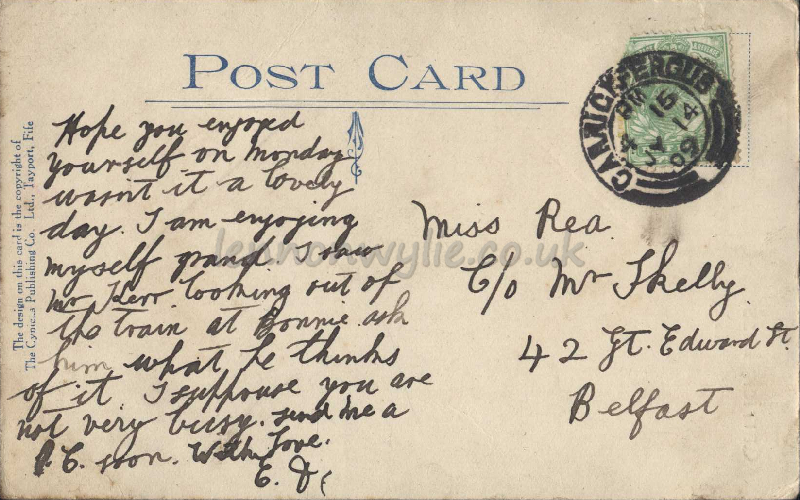 POST CARD
The design on this card is the copyright of
The Cynicus Publishing Co. Ltd., Tayport, Fife
Hope you enjoyed
yourself on Monday
wasn't it a lovely
day. I am enjoying
myself grand I saw
Mr Kerr looking out of
the train at Bonnie ask
him what he thinks
of it. I suppouse you are
not very busy. send me a
P.C. soon. With Love.
E.
Miss Rea
C/o Mr Skelly
42 Gt. Edward St.
Belfast
CARRICKFERGUS
PM 15
14
09
lennonwylie.co.uk